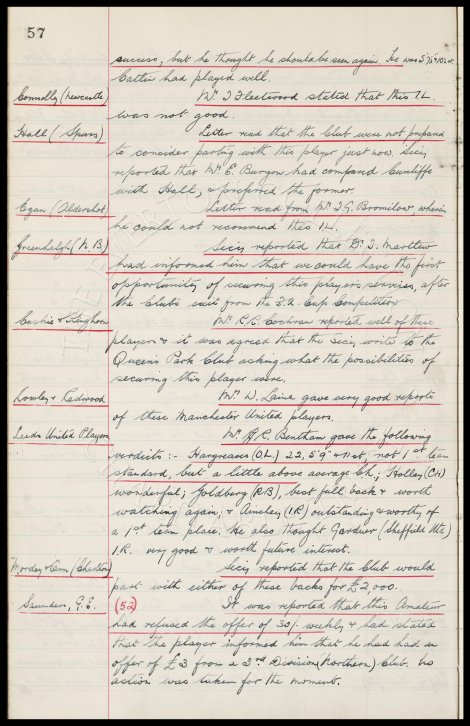 57
success, but he thought he should be seen again. He was 5'7½" +10st.
Catlin had played well.
Connolly (Newcastle) Mr. J Fleetwood stated that this IL
was not good.
Hall (Spurs) Letter read that the Club were not prepared
to consider parting with this player just now. Secy.
reported that Mr. E. Burgon had compared Cunliffe
with Hall, & preferred the former.
Egan (Aldershot) Letter read from Mr. T.G. Bromilow, wherein
he could not recommend this IL.
Greenhalgh (N.B) Secy. reported that Mr. D. Marthew
had informed him that we could have the first
opportunity of securing this players services, after
the Club's exit from the F.A. Cup Competition
Mr. R.R. Cochran reported well of these
players & it was agreed that the secy. write to the
Queen's Park Club asking what the possibilities of
securing this player were.
Lowley & Ladwood Mr. W. Laine gave very good reports
of these Manchester United players.
Leeds United Players Mr. A.C. Bentham gave the following
verdicts :- Hargreaves (O.L.) 22, 5'9" & 11st, not 1st team
standard, but a little above average Ch.; Holley (CH)
wonderful; Goldberg (R.B), best full back & worth
watching again; & Ainsley (IR) outstanding & worthy of
a 1st team place. He also thought Gardner (Sheffield Utd)
I.R. very good & worth future interest.
(Charlton) Secy. reported that the Club would
part with either of these backs for £2,000.
Saunders, G.E. (52) It was reported that this Amateur
had refused the offer of 30/- weekly & had stated
that the player informed him that he had had an
offer of £3 from a 3rd Division (Northern) Club. No
action was taken for the moment.